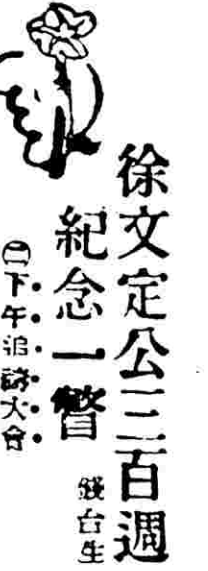 徐文定公三百週
紀念一瞥
錢台生
㊁下午追禱大會